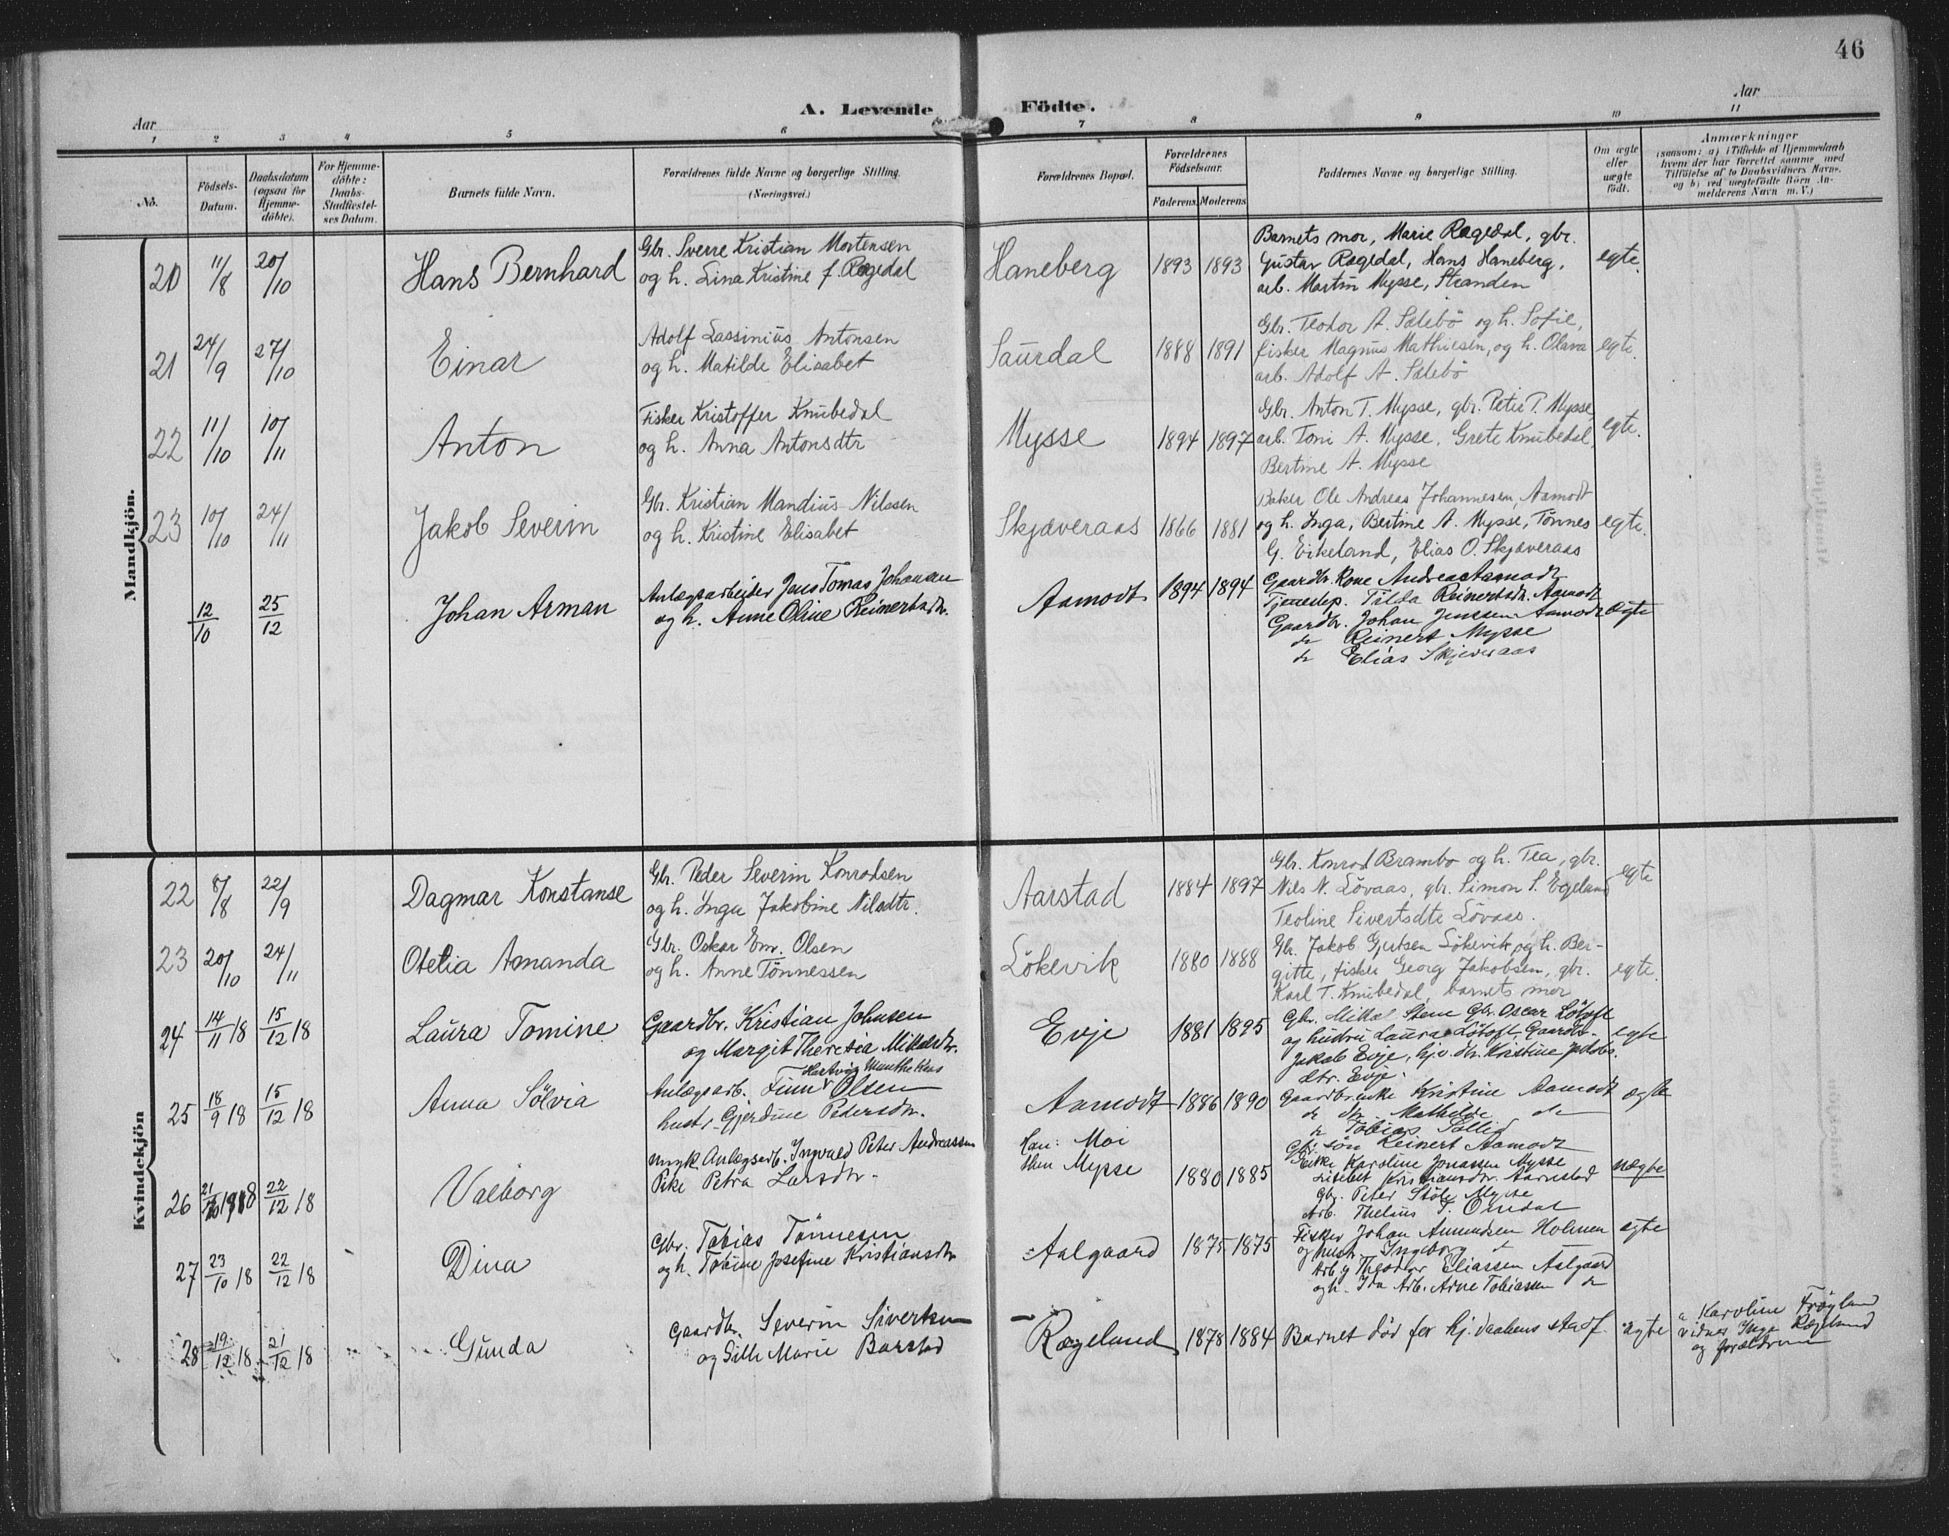 46
A. Levende Födte.
Aar
Aar
1 2 3 4 5 6 7 8 9 10 11
No.
Födsels-
Datum.
Daabsdatum
(ogsaa for
Hjemme-
döbte).
For Hjemme-
döbte:
Daabs-
Stadfæstel-
ses Datum.
Barnets fulde Navn.
Forældrenes fulde Navne og borgerlige Stilling.
(Næringsvei.)
Forældrenes Bopæl.
Forældrenes
Födselsaar.
Faderens. Moderens.
Faddernes Navne og borgerlige Stilling.
Om ægte
eller
uægte
födt.
Anmærkninger
(saasom: a) i Tilfælde af Hjemmedaab
hvem der har forrettet samme med
Tilföielse af to Daabsvidners Navne,
og b) ved uægtefödte Börn An-
melderens Navn m. V.)
Mandkjön.
20 11/8 20/10 Hans Bernhard
Gbr. Sverre Kristian Mortensen
og h. Lina Kristine f. Rægedal
Haneberg 1893 1893
Barnets mor, Marie Rægedal, gbr.
Gustav Rægedal, Hans Haneberg,
arb. Martin Mysse, Stranden
egte.
21 24/9 27/10 Einar
Adolf Lassinius Antonsen
og h. Matilde Elisabet
Saurdal 1888 1891
Gbr. Teodor A. Salebö og h. Sofie,
fisker Magnus Mathiesen, og h. Olava
arb. Adolf A. Salebö
egte.
22 11/10 10/11 Anton
Fisker Kristoffer Knubedal
og h. Anna Antonsdtr
Mysse 1894 1897
Gbr. Anton T. Mysse, gbr. Peter P. Mysse
arb. Toni A. Mysse, Grete Knubedal,
Bertine A. Mysse
egte.
23 10/10 24/11 Jakob Severin
Gbr. Kristian Mandius Nilssen
og h. Kristine Elisabet
Skjæveraas 1866 1881
Baker Ole Andreas Johannesen, Aamodt
og h. Inga, Bertine A. Mysse, Tönnes
G. Eikeland, Elias O. Skjæveraas
egte.
12/10 25/12 Johan Arman
Anlægsarbeider Jens Tomas Johansen
og h. Anne Oline Reinertsdtr.
Aamodt 1894 1894
Gaardbr. Kone Andrea Aamodt
Tjenestep. Tilda Reinertsdtr. Aamodt
Gaardbr. Johan Jenssen Aamodt
do Reinert Mysse
do Elias Skjeveraas
Ægte
Kvindekjön
22 8/8 22/9 Dagmar Konstanse
Gbr. Peder Severin Konradsen
og h. Inga Jakobine Nilsdtr.
Aarstad 1884 1897
Gbr. Konrad Brambo og h. Tea, gbr.
Nils N. Lövaas, gbr. Simon S. Egeland
Teoline Sivertsdtr Lövaas.
egte
23 20/10 24/11 Otelia Amanda
Gbr. Oskar Em. Olsen
og h. Anne Tönnessen
Lökevik 1880 1888
Gbr. Jakob Gjertsen Lökevik og h. Ber-
gitte, fisker Georg Jakobsen, gbr.
Karl T. Knubedal, barnets mor
egte.
24 14/11 18 15/12 18 Laura Tomine
Gaardbr. Kristian Johnsen
og Margit Theresea Mikalsdtr.
Evje 1881 1895
Gbr. Mikal Stene Gbr. Oscar Lötoft
og hustru Laura Lötoft, Gaardb.
Jakob Evje, hjv. dtr. Kristine Jakobs-
dtr. Evje.
egte
25 18/9 18 15/12 18 Anna Sölvia
Hartvig Munthe Kaas
Anlægsarb. Finn Olsen
hustr. Gjerdine Pedersdtr.
Aamodt 1886 1890
Gaardbrenke Kristine Aamodt
do dtr. Mathilde do
do Tobias Sollid
Gbr. sön Reinert Aamodt
ægte
26 21/10 1918 22/12 18 Valborg
Ungk. Anlægsarb. Ingvald Peter Andreassen
Pike Petra Larsdtr.
Han: Moi
Hun Mysse 1880 1885
Enke Karoline Jonassen Mysse
Lisebet Kristiansdtr. Aarrestad
Gbr. Peter Stöle Mysse
Arb. Thelius T. Omdal
uægte
27 23/10 18 22/12 18 Dina
Gbr. Tobias Tönnesen
og h. Tobine Josefine Kristiansdtr
Aalgaard 1875 1875
Fisker Johan Amundsen Holmen
og hustr. Ingeborg do
Arb. g Theodor Eliassen Aalgaard
og h. Ida Arb. Arne Tobiassen do
ægte
28 19/12 18 21/12 18 Gunda
Gaardbr. Severin Sivertsen
og Silli Marie Barstad
Rægeland 1878 1884
Barnet död för hj. daabens stadf.
ægte
a Karoline Fröyland
vidner Inga Rægeland
og forældrene